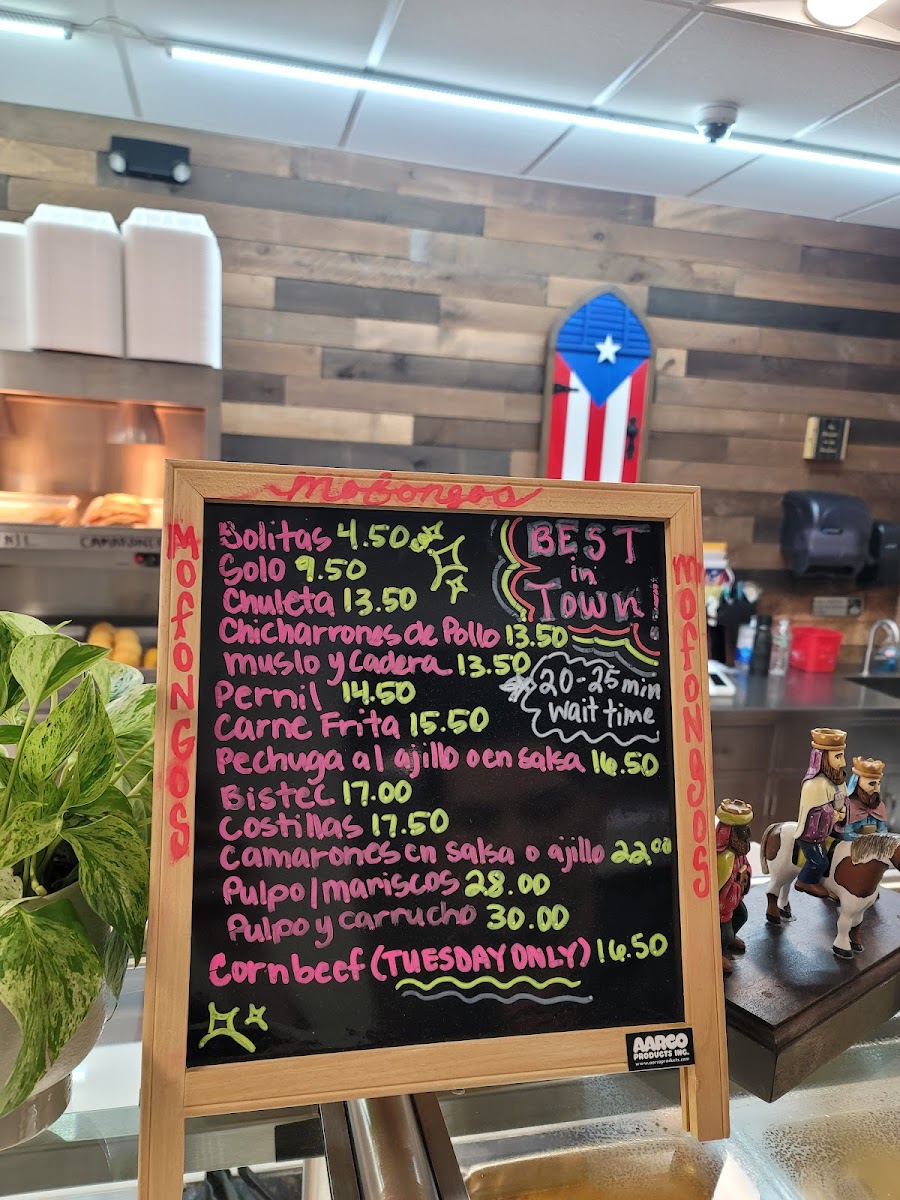 Mofongos
Mofongos
Mofongos
Bolitas 4.50
Solo 9.50
Chuleta 13.50
Chicharrones de Pollo 13.50
muslo y Cadera 13.50
Pernil 14.50
Carne Frita 15.50
Pechuga al ajillo o en salsa 16.50
Bistec 17.00
Costillas 17.50
Camarones en salsa o ajillo 22.00
Pulpo/mariscos 28.00
Pulpo y carrucho 30.00
Cornbeef (TUESDAY ONLY) 16.50
BEST
in
Town!
20-25 min
wait time
AARCO
PRODUCTS INC.
www.aarcoproducts.com